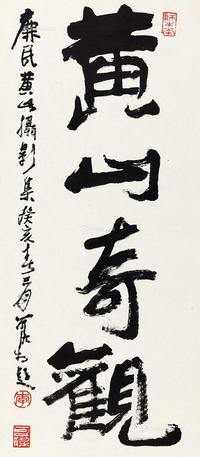 黄山奇觀
廉民黄山攝影集癸亥春三月可染題